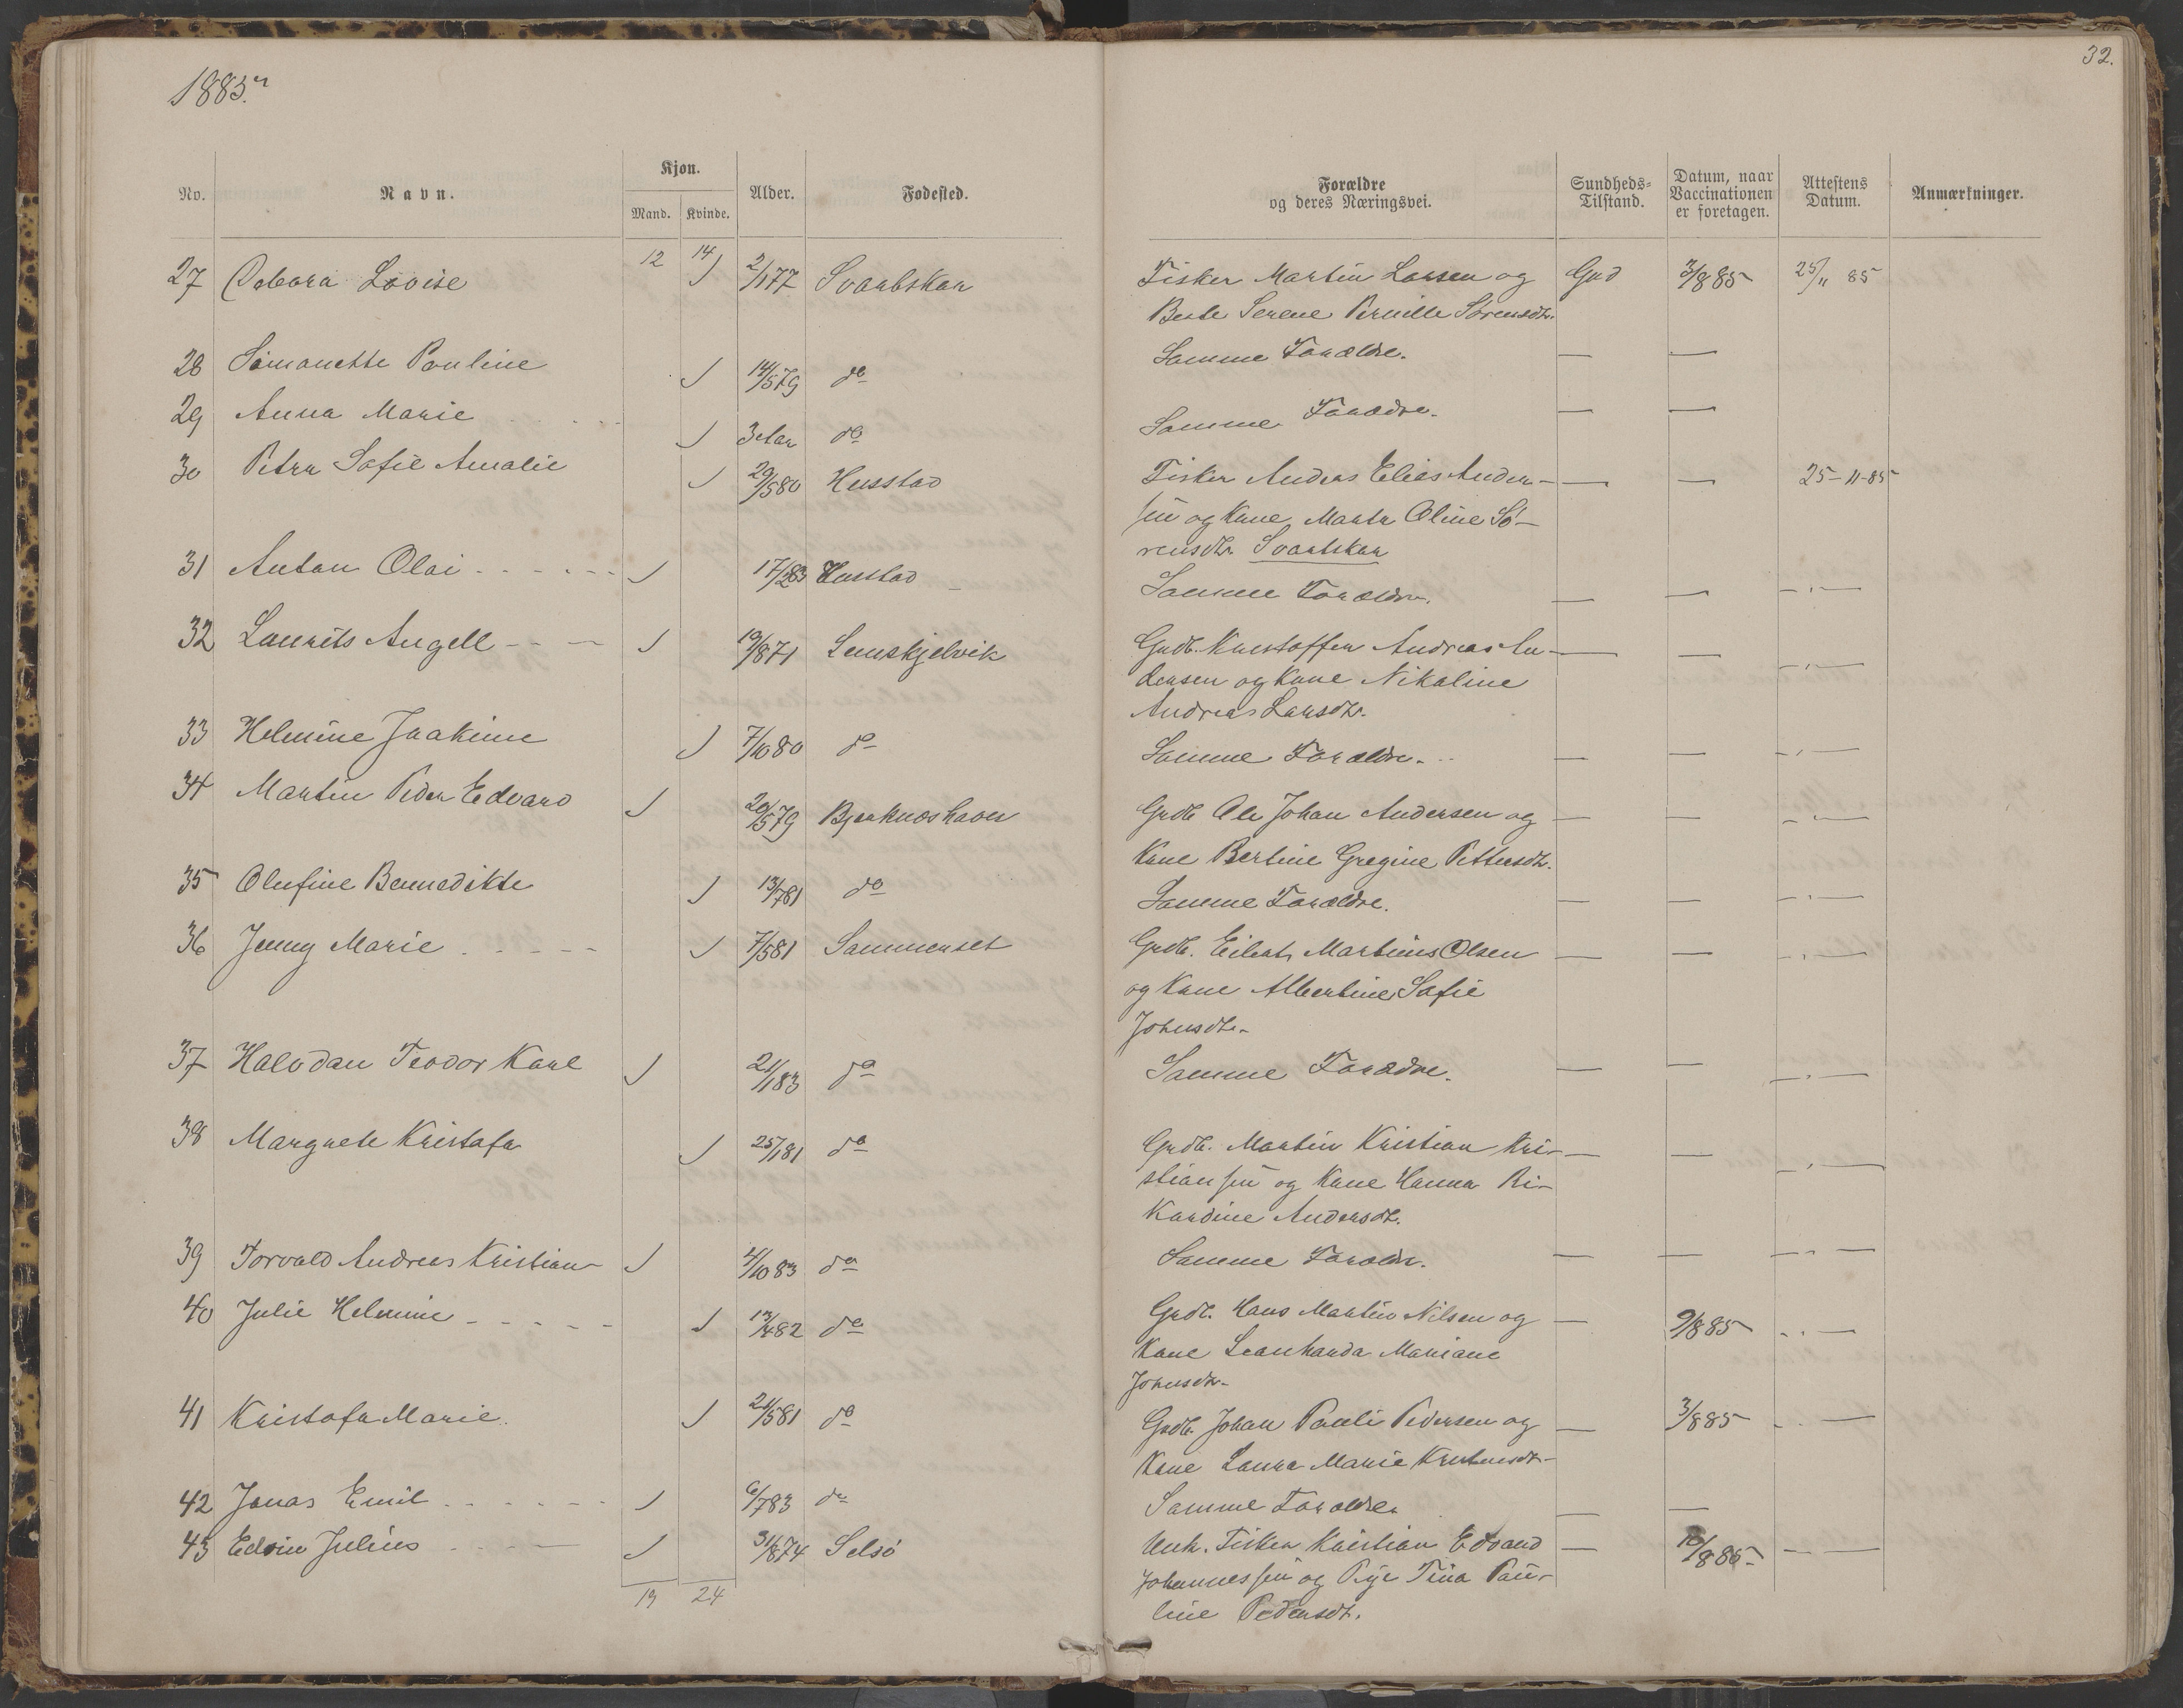 1885.
32.
No. Navn. Kjøn. Mand. Kvinde. Alder. Fødested. Forældre og deres Næringsvei. Sundheds-Tilstand. Datum, naar Vaccinationen er foretagen. Attestens Datum. Anmærkninger.
12 14
27 Lovise 2/1 77 Fisker Martin Larsen og God 3/8 85 25/11 85
Serene Pernille Sørensdtr.
28 Simonette Pauline 14/5 79 do Samme Forældre. — —
29 Anna Marie 3 Aar do Samme Forældre. — —
30 Petra Sofie Amalie 29/5 80 Husstad Fisker Anders Elias Ander- — — 25-11-85
sen og Kone Marta Oline Sø-
rensdtr. Svartskar
31 Anton Olai 17/2 83 Husstad Samme Forældre. — — — " —
32 Laurits Angell 19/8 71 Lenskjelvik Grdb. Kristoffer Andreas An- — — — " —
dersen og Kone Nikoline
Andrea Larsdtr.
33 Helmine Joakime 7/10 80 do Samme Forældre. — — — " —
34 Martin Peder Edvard 20/5 79 Grdb Ole Johan Andersen og — — — " —
Kone Bertine Gregine Pettersdtr.
35 Olufine Bennedikte 13/7 81 do Samme Forældre. — — — " —
36 Jenny Marie 7/5 81 Sammenset Grdb. Eilert Martinus Olsen — — — " —
og Kone Albertine Sofie
Johnsdtr.
37 Halvdan Teodor Karl 21/1 83 do Samme Forældre. — — — " —
38 Margrete Kristofa 25/1 81 do Grdb. Martin Kristian Kri- — — — " —
stiansen og Kone Hanna Ri-
kardine Andersdtr.
39 Torvald Andreas Kristian 4/10 83 do Samme Forældr. — — — " —
40 Julie Helmine 13/4 82 do Grdb. Hans Martin Nilsen og — 9/8 85 " —
Kone Leonharda Mariane
Johnsdtr.
41 Kristofa Marie 21/5 81 do Grdb. Johan Pauli Pedersen og — 3/8 85 " —
Kone Laura Marie
42 Jonas Emil 6/7 83 do Samme Forældre — —
43 Edvin Julius 31/8 74 Selsø Unk. Fisker Kristian Edvard — 10/8 85 — —
Johannessen og Pige Tina Pau-
line Pedersdtr.
19 24